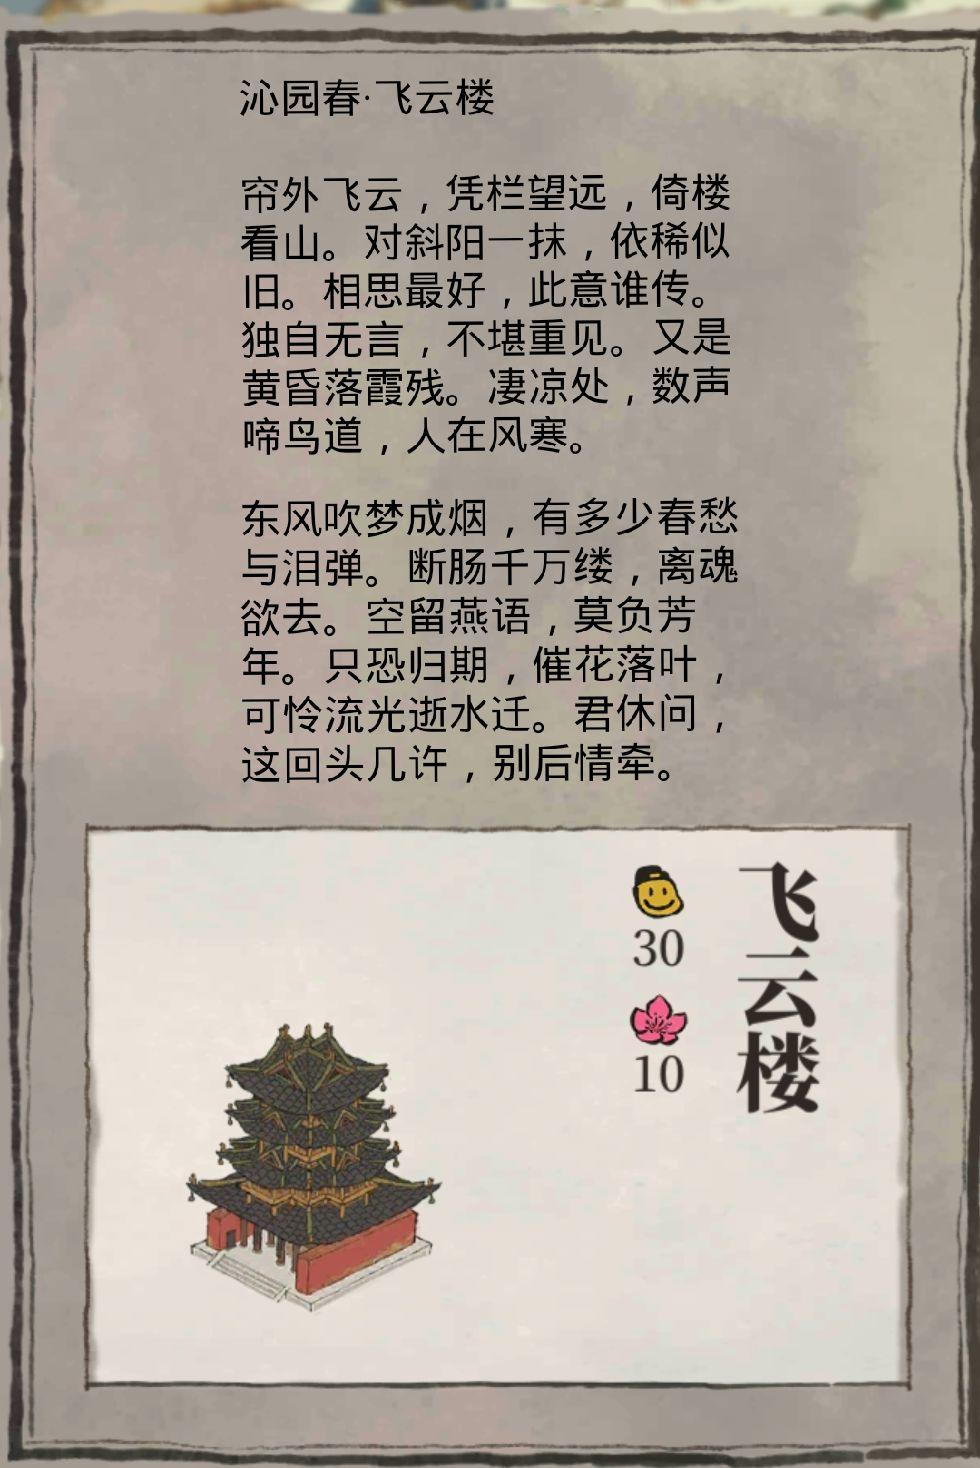 沁园春·飞云楼
帘外飞云，凭栏望远，倚楼
看山。对斜阳一抹，依稀似
旧。相思最好，此意谁传。
独自无言，不堪重见。又是
黄昏落霞残。凄凉处，数声
啼鸟道，人在风寒。
东风吹梦成烟，有多少春愁
与泪弹。断肠千万缕，离魂
欲去。空留燕语，莫负芳
年。只恐归期，催花落叶，
可怜流光逝水迁。君休问，
这回头几许，别后情牵。
飞云楼
30
10